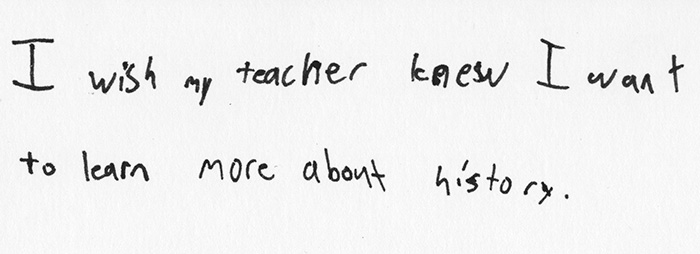 I wish my teacher knew I want
to learn more about history.